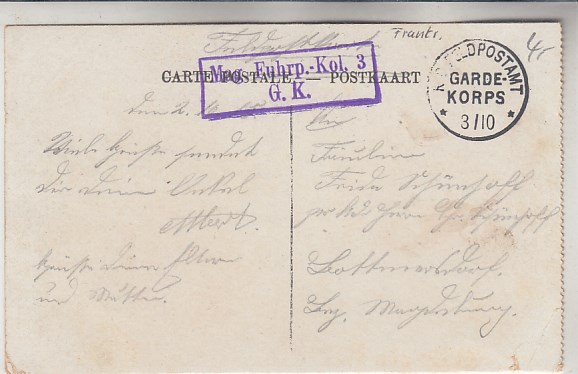 Feldpostkarte
Frankr.
CARTE POSTALE — POSTKAART
Mag. Fuhrp.-Kol. 3
G. K.
K.D. FELDPOSTAMT
GARDE-
KORPS
* 3/10 *
den 2.
Viele Grüße sendet
Dir Deine Onkel
Albert.
und Mutter.
An
Fräulein
Frida Schünhoff
Herrn Schünhoff
Bottmersdorf.
Bez. Magdeburg.